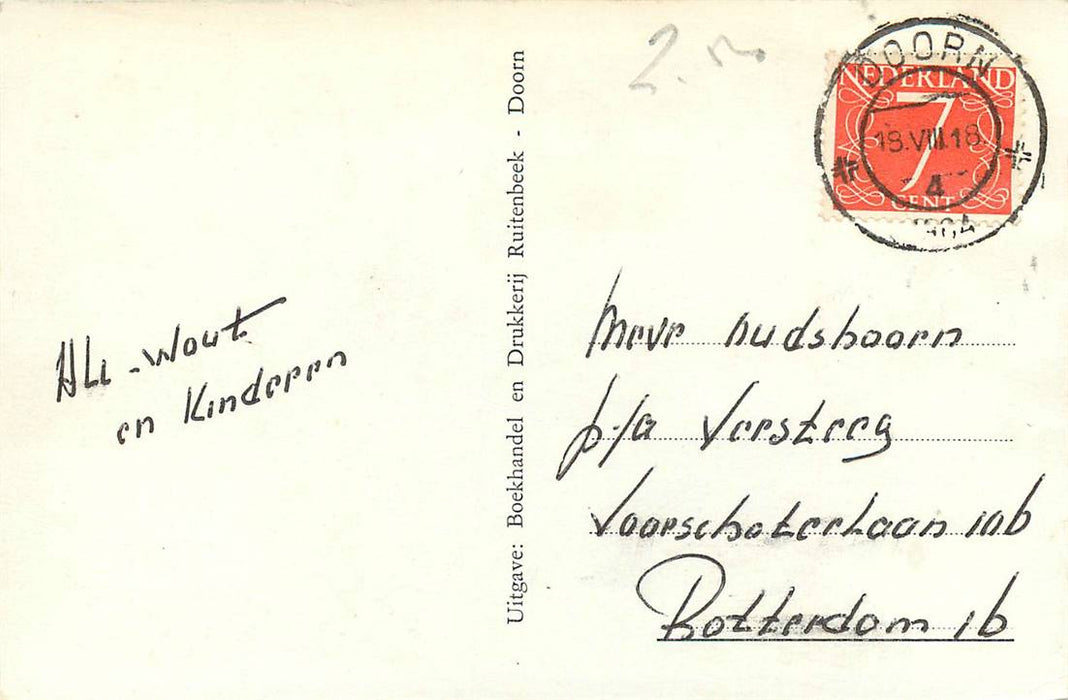 All - Wout
en Kinderen
Uitgave: Boekhandel en Drukkerij Ruitenbeek - Doorn
DOORN
18.VIII.18
4
1964
NEDERLAND
7
CENT
Mevr Oudshoorn
p/a Versteeg
Voorschoterlaan 10b
Rotterdam 16